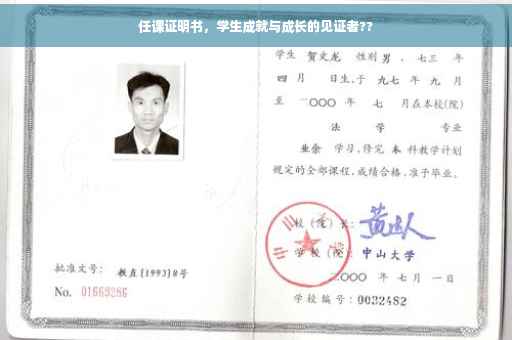 任课证明书，学生成就与成长的见证者??
学生 贺文龙 性别 男，七三 年
四 月 日生，于 九七 年 九 月
至 二〇〇〇 年 七 月在本校(院)
法 学 专业
业余 学习，修完 本 科教学计划
规定的全部课程，成绩合格，准予毕业。
校（院）长：
学校（院）：中山大学
二〇〇〇 年 七 月 一 日
学校编号：0032482
批准文号：教直[1993]8号
No. 01669286